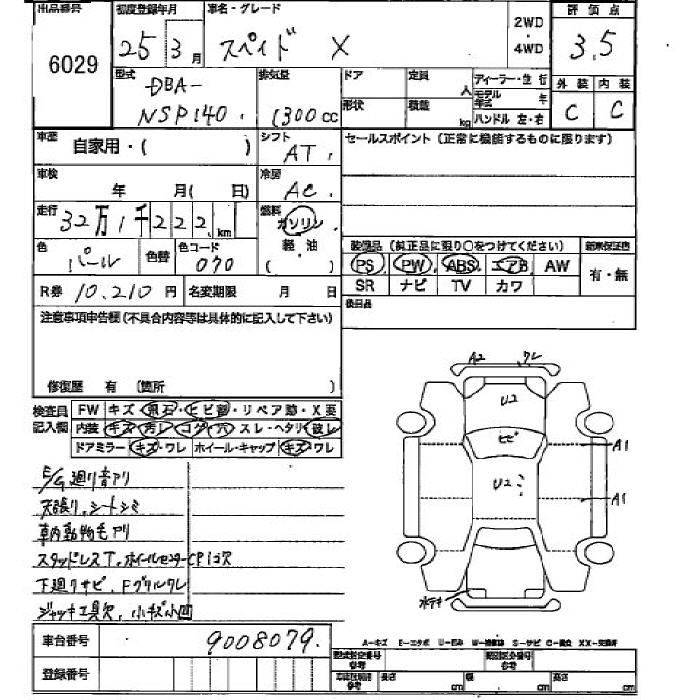 出品番号 初度登録年月 車名・グレード 2WD ・ 4WD 評価点
6029 25年3月 スペイド X 3.5
型式 DBA- NSP140. 排気量 1300cc
ドア 定員 人 ディーラー・並行 モデル年式 年 ハンドル 左・右
形状 積載 kg
外装 内装
C C
車歴 自家用・( ) シフト AT.
セールスポイント(正常に機能するものに限ります)
車検 年 月( 日) 冷房 AC.
走行 32万1千222km 燃料 ガソリン. 軽油 ( )
色 パール 色替 色コード 070
装備品(純正品に限り○をつけてください) 新車保証書
PS PW ABS エアB AW 有・無
SR ナビ TV カワ
R券 10,210円 名変期限 月 日
後日品
注意事項申告欄(不具合内容等は具体的に記入して下さい)
修復歴 有 (箇所 )
検査員記入欄 FW キズ・飛石・ヒビ割・リペア跡・X要
内装 キズ・汚レ・コゲ・穴・スレ・ヘタリ・破レ
ドアミラー キズ・ワレ ホイール・キャップ キズ・ワレ
E/G廻り音アリ
天張り、シートシミ
車内動物毛アリ
スタッドレスT、ホイールセンターCP1コ欠
下廻りサビ、Fグリルワレ
ジャッキ工具欠、小キズ小凹
A2 ワレ
U2
ヒビ
A1
U2
A1
車台番号 9008079.
登録番号
A-キズ E-エクボ U-凹ミ W-補修跡 S-サビ C-腐食 XX-交換済
型式指定番号 参考 類別区分番号 参考
車両区画用 参考 長さ cm 幅 cm 高さ cm